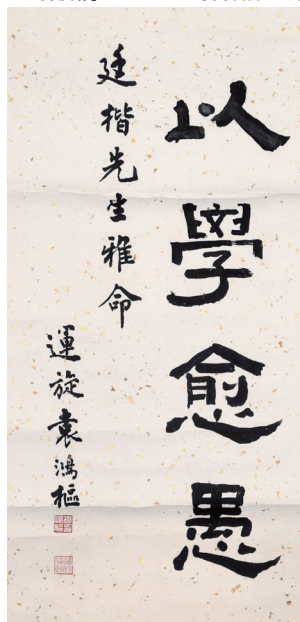 以學愈愚
廷楷先生雅命
運旋袁鴻樞